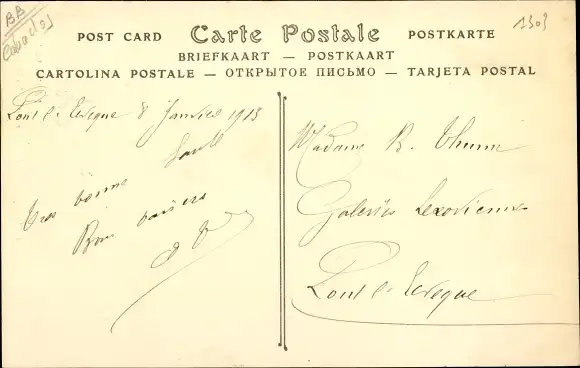 BB
Calvados
1303
POST CARD Carte Postale POSTKARTE
BRIEFKAART — POSTKAART
CARTOLINA POSTALE — ОТКРЫТОЕ ПИСЬМО — TARJETA POSTAL
Pont l'Eveque 8 Janvier 1913
Santé
Tres bonne
Bon baisers
Madame R. Thumi
Galeries Lexoviennes
Pont l'Eveque